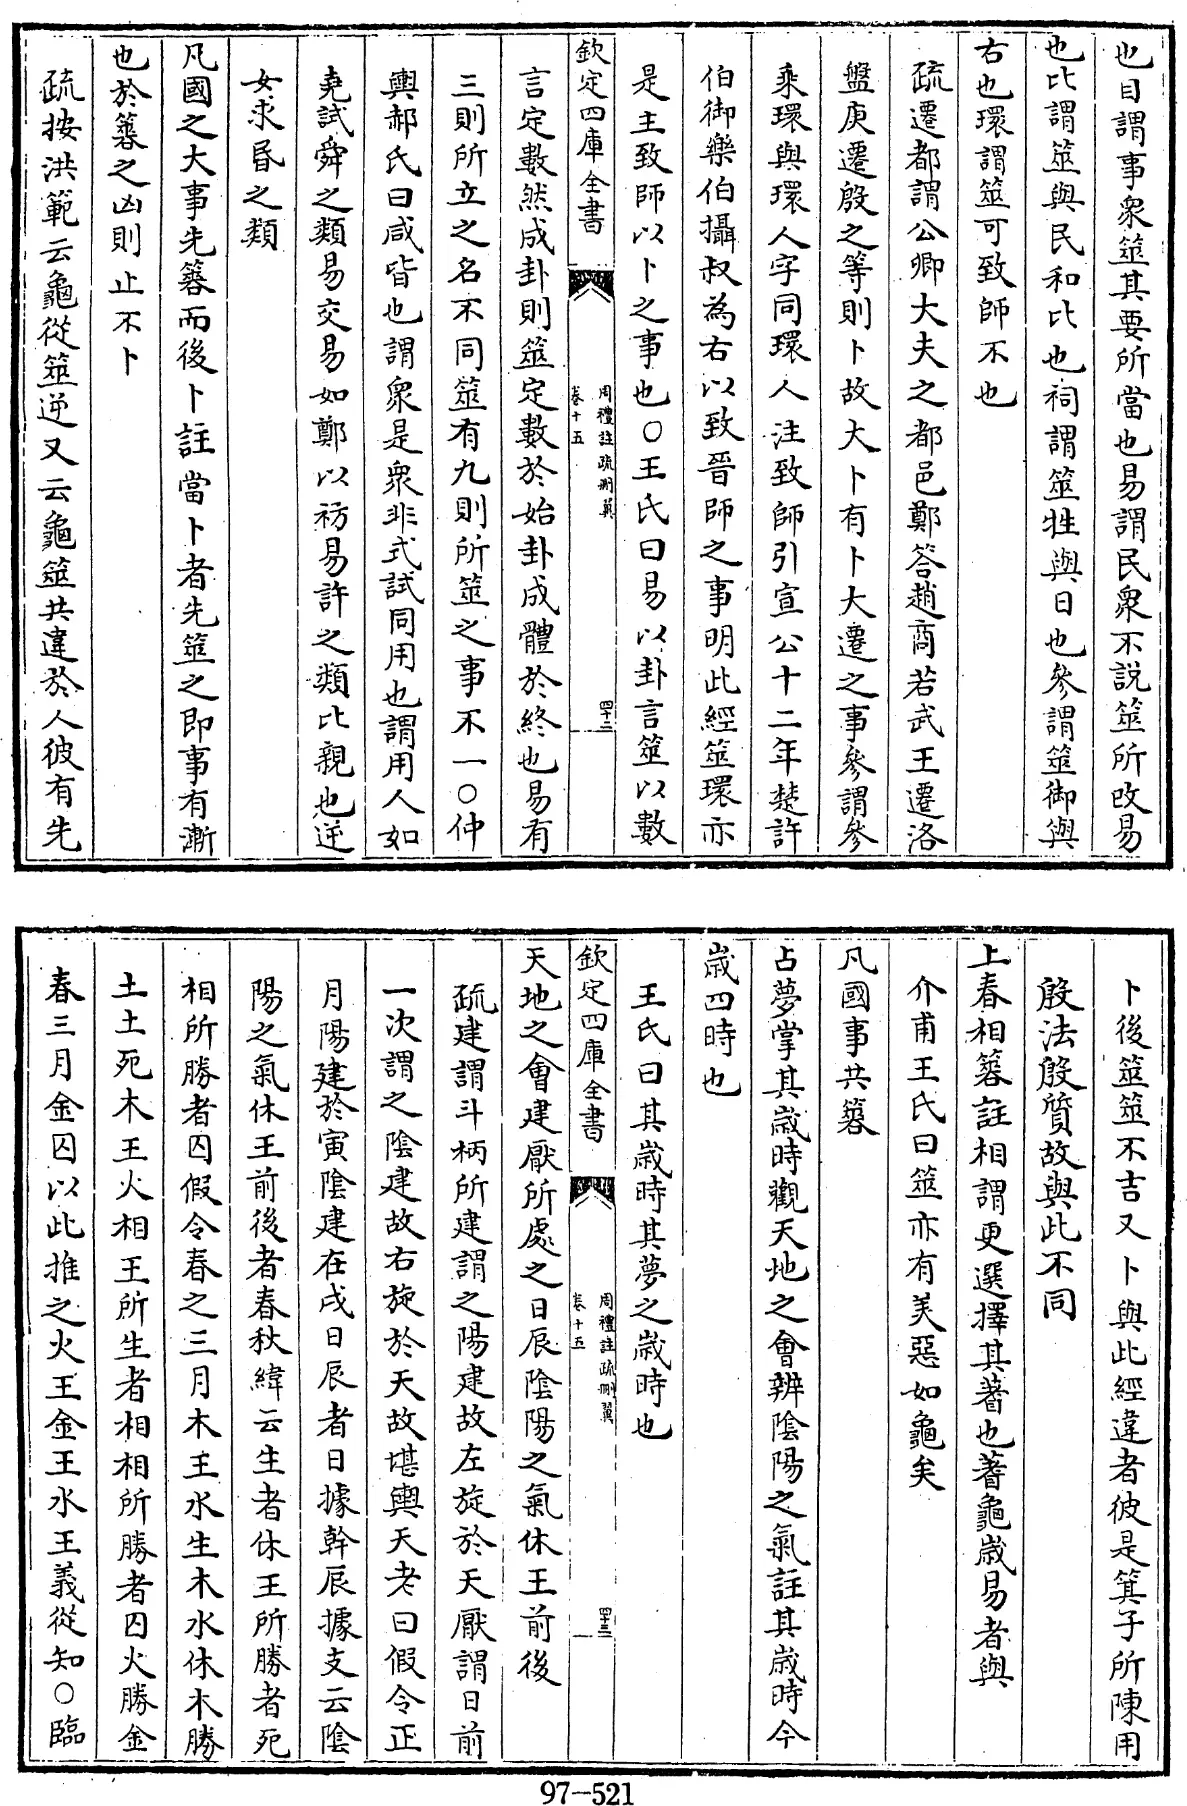 也目謂事衆筮其要所當也易謂民衆不説筮所改易
也比謂筮與民和比也祠謂筮牲與日也參謂筮御與
右也環謂筮可致師不也
疏遷都謂公卿大夫之都邑鄭答趙商若武王遷洛
盤庚遷殷之等則卜故大卜有卜大遷之事參謂參
乘環與環人字同環人注致師引宣公十二年楚許
伯御樂伯攝叔為右以致晉師之事明此經筮環亦
是主致師以卜之事也○王氏曰易以卦言筮以數
欽定四庫全書
周禮註疏刪翼
卷十五
四十二
言定數然成卦則筮定數於始卦成體於終也易有
三則所立之名不同筮有九則所筮之事不一○仲
輿郝氏曰咸皆也謂衆是衆非式試同用也謂用人如
堯試舜之類易交易如鄭以祊易許之類比親也逆
女求昏之類
凡國之大事先簭而後卜註當卜者先筮之即事有漸
也於簭之凶則止不卜
疏按洪範云龜從筮逆又云龜筮共違於人彼有先
卜後筮筮不吉又卜與此經違者彼是箕子所陳用
殷法殷質故與此不同
上春相簭註相謂更選擇其蓍也蓍龜歲易者與
介甫王氏曰筮亦有美惡如龜矣
凡國事共簭
占夢掌其歲時觀天地之會辨陰陽之氣註其歲時今
歲四時也
王氏曰其歲時其夢之歲時也
欽定四庫全書
周禮註疏刪翼
卷十五
四十三
天地之會建厭所處之日辰陰陽之氣休王前後
疏建謂斗柄所建謂之陽建故左旋於天厭謂日前
一次謂之陰建故右旋於天故堪輿天老曰假令正
月陽建於寅陰建在戌日辰者日據幹辰據支云陰
陽之氣休王前後者春秋緯云生者休王所勝者死
相所勝者囚假令春之三月木王水生木水休木勝
土土死木王火相王所生者相相所勝者囚火勝金
春三月金囚以此推之火王金王水王義從知○臨
97-521